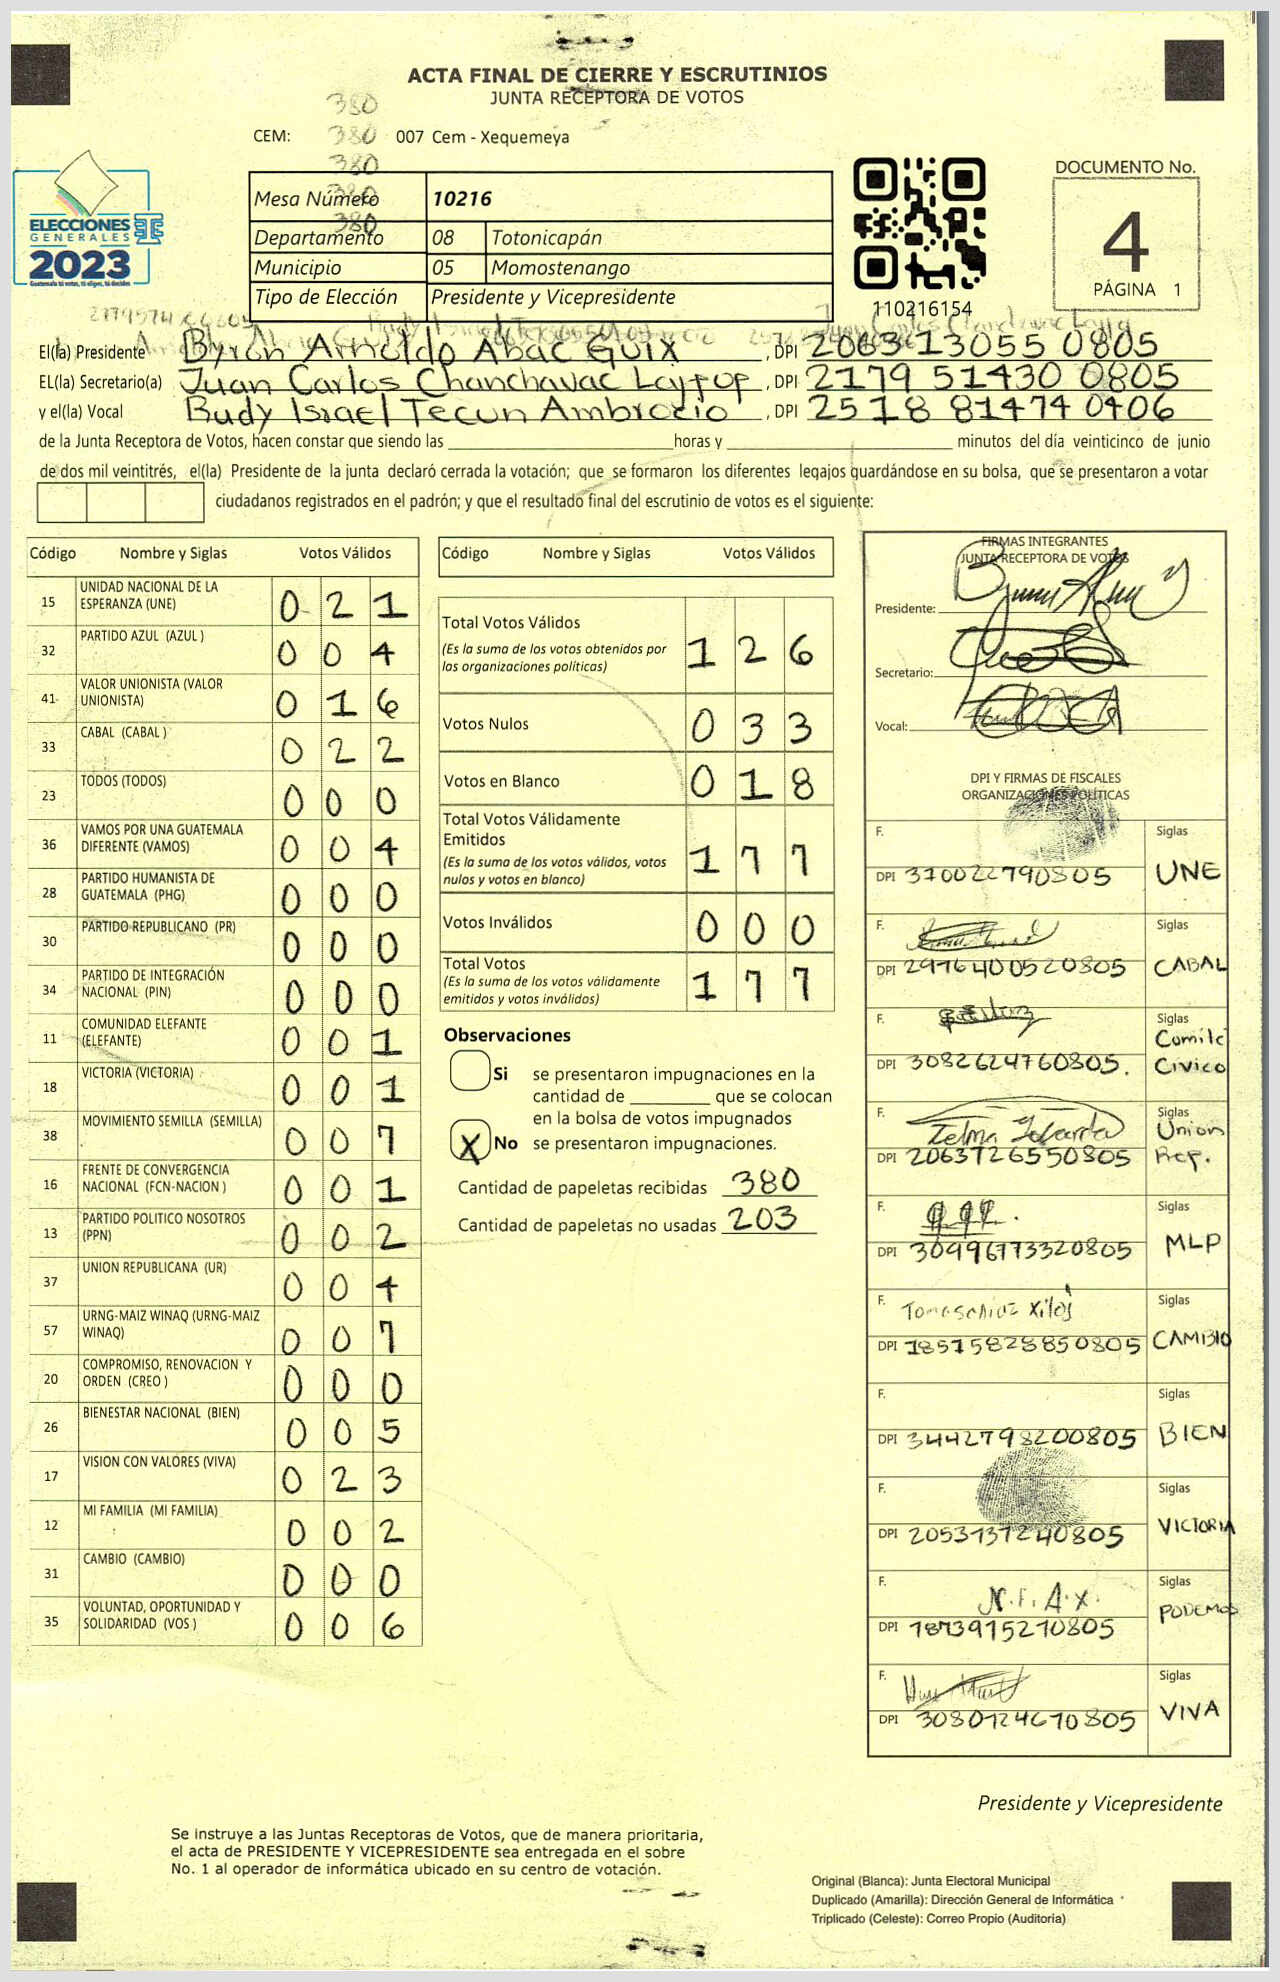 ACTA FINAL DE CIERRE Y ESCRUTINIOS
JUNTA RECEPTORA DE VOTOS
380
CEM: 380 007 Cem - Xequemeya
380
380
380
ELECCIONES
GENERALES
2023
Guatemala tú votas, tú eliges, tú decides
Mesa Número 10216
Departamento 08 Totonicapán
Municipio 05 Momostenango
Tipo de Elección Presidente y Vicepresidente
110216154
DOCUMENTO No.
4
PÁGINA 1
El(la) Presidente Byron Arnoldo Abac Guix, DPI 2063 13055 0805
EL(la) Secretario(a) Juan Carlos Chanchavac, DPI 2179 51430 0805
y el(la) Vocal Rudy Israel Tecun Ambrocio, DPI 2518 81474 0406
de la Junta Receptora de Votos, hacen constar que siendo las ____ horas y ____ minutos del día veinticinco de junio
de dos mil veintitrés, el(la) Presidente de la junta declaró cerrada la votación; que se formaron los diferentes legajos guardándose en su bolsa, que se presentaron a votar
ciudadanos registrados en el padrón; y que el resultado final del escrutinio de votos es el siguiente:
Código Nombre y Siglas Votos Válidos
15 UNIDAD NACIONAL DE LA ESPERANZA (UNE) 0 2 1
32 PARTIDO AZUL (AZUL ) 0 0 4
41 VALOR UNIONISTA (VALOR UNIONISTA) 0 1 6
33 CABAL (CABAL ) 0 2 2
23 TODOS (TODOS) 0 0 0
36 VAMOS POR UNA GUATEMALA DIFERENTE (VAMOS) 0 0 4
28 PARTIDO HUMANISTA DE GUATEMALA (PHG) 0 0 0
30 PARTIDO REPUBLICANO (PR) 0 0 0
34 PARTIDO DE INTEGRACIÓN NACIONAL (PIN) 0 0 0
11 COMUNIDAD ELEFANTE (ELEFANTE) 0 0 1
18 VICTORIA (VICTORIA) 0 0 1
38 MOVIMIENTO SEMILLA (SEMILLA) 0 0 7
16 FRENTE DE CONVERGENCIA NACIONAL (FCN-NACION ) 0 0 1
13 PARTIDO POLITICO NOSOTROS (PPN) 0 0 2
37 UNION REPUBLICANA (UR) 0 0 4
57 URNG-MAIZ WINAQ (URNG-MAIZ WINAQ) 0 0 7
20 COMPROMISO, RENOVACION Y ORDEN (CREO ) 0 0 0
26 BIENESTAR NACIONAL (BIEN) 0 0 5
17 VISION CON VALORES (VIVA) 0 2 3
12 MI FAMILIA (MI FAMILIA) 0 0 2
31 CAMBIO (CAMBIO) 0 0 0
35 VOLUNTAD, OPORTUNIDAD Y SOLIDARIDAD (VOS ) 0 0 6
Código Nombre y Siglas Votos Válidos
Total Votos Válidos 1 2 6
(Es la suma de los votos obtenidos por
las organizaciones políticas)
Votos Nulos 0 3 3
Votos en Blanco 0 1 8
Total Votos Válidamente
Emitidos 1 7 7
(Es la suma de los votos válidos, votos
nulos y votos en blanco)
Votos Inválidos 0 0 0
Total Votos 1 7 7
(Es la suma de los votos válidamente
emitidos y votos inválidos)
Observaciones
Si se presentaron impugnaciones en la
cantidad de ____ que se colocan
en la bolsa de votos impugnados
X No se presentaron impugnaciones.
Cantidad de papeletas recibidas 380
Cantidad de papeletas no usadas 203
FIRMAS INTEGRANTES
JUNTA RECEPTORA DE VOTOS
Presidente:
Secretario:
Vocal:
DPI Y FIRMAS DE FISCALES
ORGANIZACIONES POLÍTICAS
F. Siglas
DPI 310022790805 UNE
F. Siglas
DPI 2976400520805 CABAL
F. Siglas
DPI 3082624760805. Comité Civico
F. Telma Siglas
DPI 2063726550805 Union Rep.
F. Siglas
DPI 30996773320805 MLP
F. Siglas
DPI 18515828850805 CAMBIO
F. Siglas
DPI 3442798200805 BIEN
F. Siglas
DPI 2053737240805 VICTORIA
F. N.F.A.X. Siglas
DPI 1873915210805 PODEMOS
F. Siglas
DPI 3080724670805 VIVA
Presidente y Vicepresidente
Se instruye a las Juntas Receptoras de Votos, que de manera prioritaria,
el acta de PRESIDENTE Y VICEPRESIDENTE sea entregada en el sobre
No. 1 al operador de informática ubicado en su centro de votación.
Original (Blanca): Junta Electoral Municipal
Duplicado (Amarilla): Dirección General de Informática
Triplicado (Celeste): Correo Propio (Auditoría)